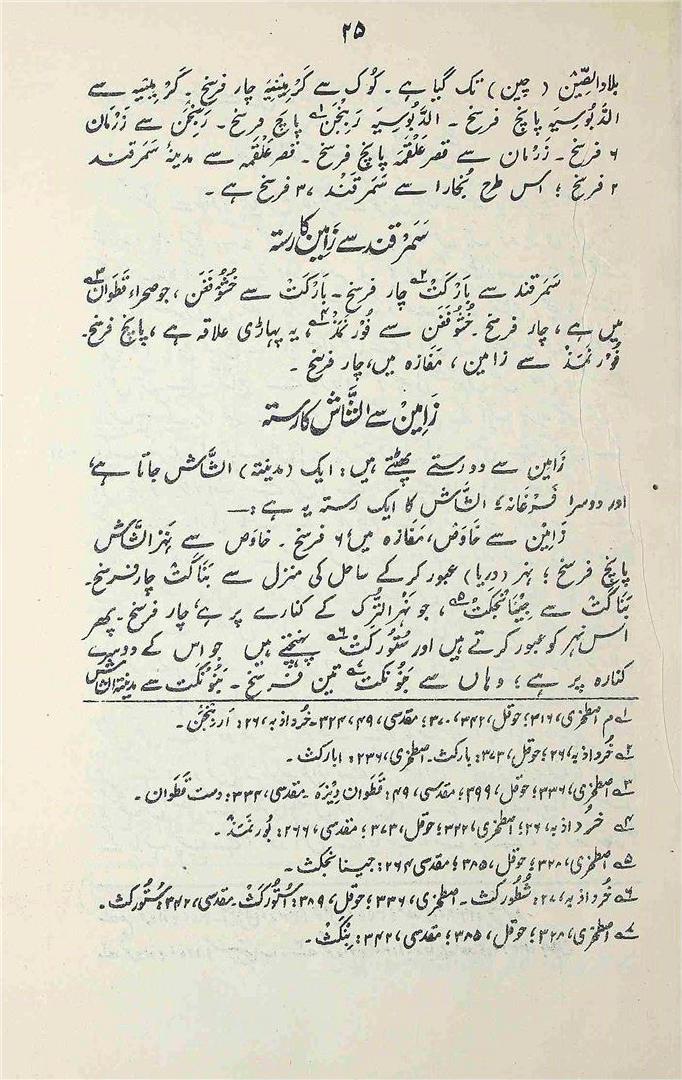 ۲۵
بلاد الصِّیْن (چین) تک گیا ہے ۔ کُوک سے کَرْمِیْنِیَہ چار فرسخ ۔ کَرْمِیْنِیَہ سے
الدَّبُوسِیَہ پانچ فرسخ ۔ الدَّبُوسِیَہ رَبِنْجَن؎۱ پانچ فرسخ ۔ رَبِنْجَن سے زَرْمان
۶ فرسخ ۔ زَرْمان سے قصر عَلْقَمَہ پانچ فرسخ ۔ قصر عَلْقَمَہ سے مدینۂ سَمَرقند
۲ فرسخ ؛ اس طرح بُخارا سے سَمَرقَند ۳۷ فرسخ ہے ۔
سَمَرْقند سے زَامِیْن کا رستہ
سَمَرقند سے بارْکَث؎۲ چار فرسخ ۔ بارْکَث سے خُشُوفَغَن ، جو صحراء قَطَوان؎۳
میں ہے ، چار فرسخ ۔ خُشُوفَغَن سے فُورْنَمَذ؎۴ ، یہ پہاڑی علاقہ ہے ، پانچ فرسخ ۔
فُورْنَمَذ سے زامین ، مَفَازہ میں ، چار فرسخ ۔
زَامِیْن سے الشَّاش کا رستہ
زَامین سے دو رستے پھٹتے ہیں : ایک (مدینتہ) الشَّاش جاتا ہے ،
اور دوسرا فَرْغانہ ؛ الشَّاش کا ایک رستہ یہ ہے :—
زَامِیْن سے خَاوَص ، مَفَازہ میں ، ۶ فرسخ ۔ خاوَص سے نَہْر الشَّاش
پانچ فرسخ ؛ نہر (دریا) عبور کرکے ساحل کی منزل سے بَنَاکَث چار فرسخ ۔
بَنَاکَث سے جِیْنَانْجَکَث؎۵ ، جو نَہْر التُّرک کے کنارے پر ہے ، چار فرسخ ۔ پھر
اس نہر کو عبور کرتے ہیں اور سُتُورکَث؎۶ پہنچتے ہیں جو اس کے دوسرے
کنارہ پر ہے ؛ وہاں سے بَنُونکَث؎۷ تین فرسخ ۔ بَنُونکَث سے مدینۃ الشاش
؎۱ م اصطخری ، ۳۱۶ ؛ حوقل ، ۳۴۲ ، ۳۷۰ ؛ مقدسی ، ۴۹ ، ۳۲۴ ۔ خُرداذبہ ، ۲۶ : اَربِنْجَن ۔
؎۲ خُرداذبہ ، ۲۶ ؛ حوقل ، ۳۷۳ : بارکث ۔ اصطخری ، ۲۳۶ : ابارکث ۔
؎۳ اصطخری ، ۳۳۶ ؛ حوقل ، ۳۹۹ ؛ مقدسی ، ۴۹ : قَطَوان دِیْزَہ ۔ مقدسی ، ۳۳۴ : دست قَطَوان ۔
؎۴ خرُداذبہ ، ۲۶ ؛ اصطخری ، ۳۲۲ ؛ حوقل ، ۳۷۳ ؛ مقدسی ، ۲۶۶ : بُورنَمَذ ۔
؎۵ اصطخری ، ۳۲۸ ؛ حوقل ، ۳۸۵ ؛ مقدسی ۲۶۴ : جینانجکث ۔
؎۶ خُرداذبہ ، ۲۷ : شُطُورکث ۔ اصطخری ، ۳۳۶ ؛ حوقل ، ۳۸۹ : اُسْتُورکَث ۔ مقدسی ، ۳۴۲ : سُتُورکث ۔
؎۷ اصطخری ، ۳۲۸ ؛ حوقل ، ۳۸۵ ؛ مقدسی ، ۳۴۲ : بِنْکَث ۔